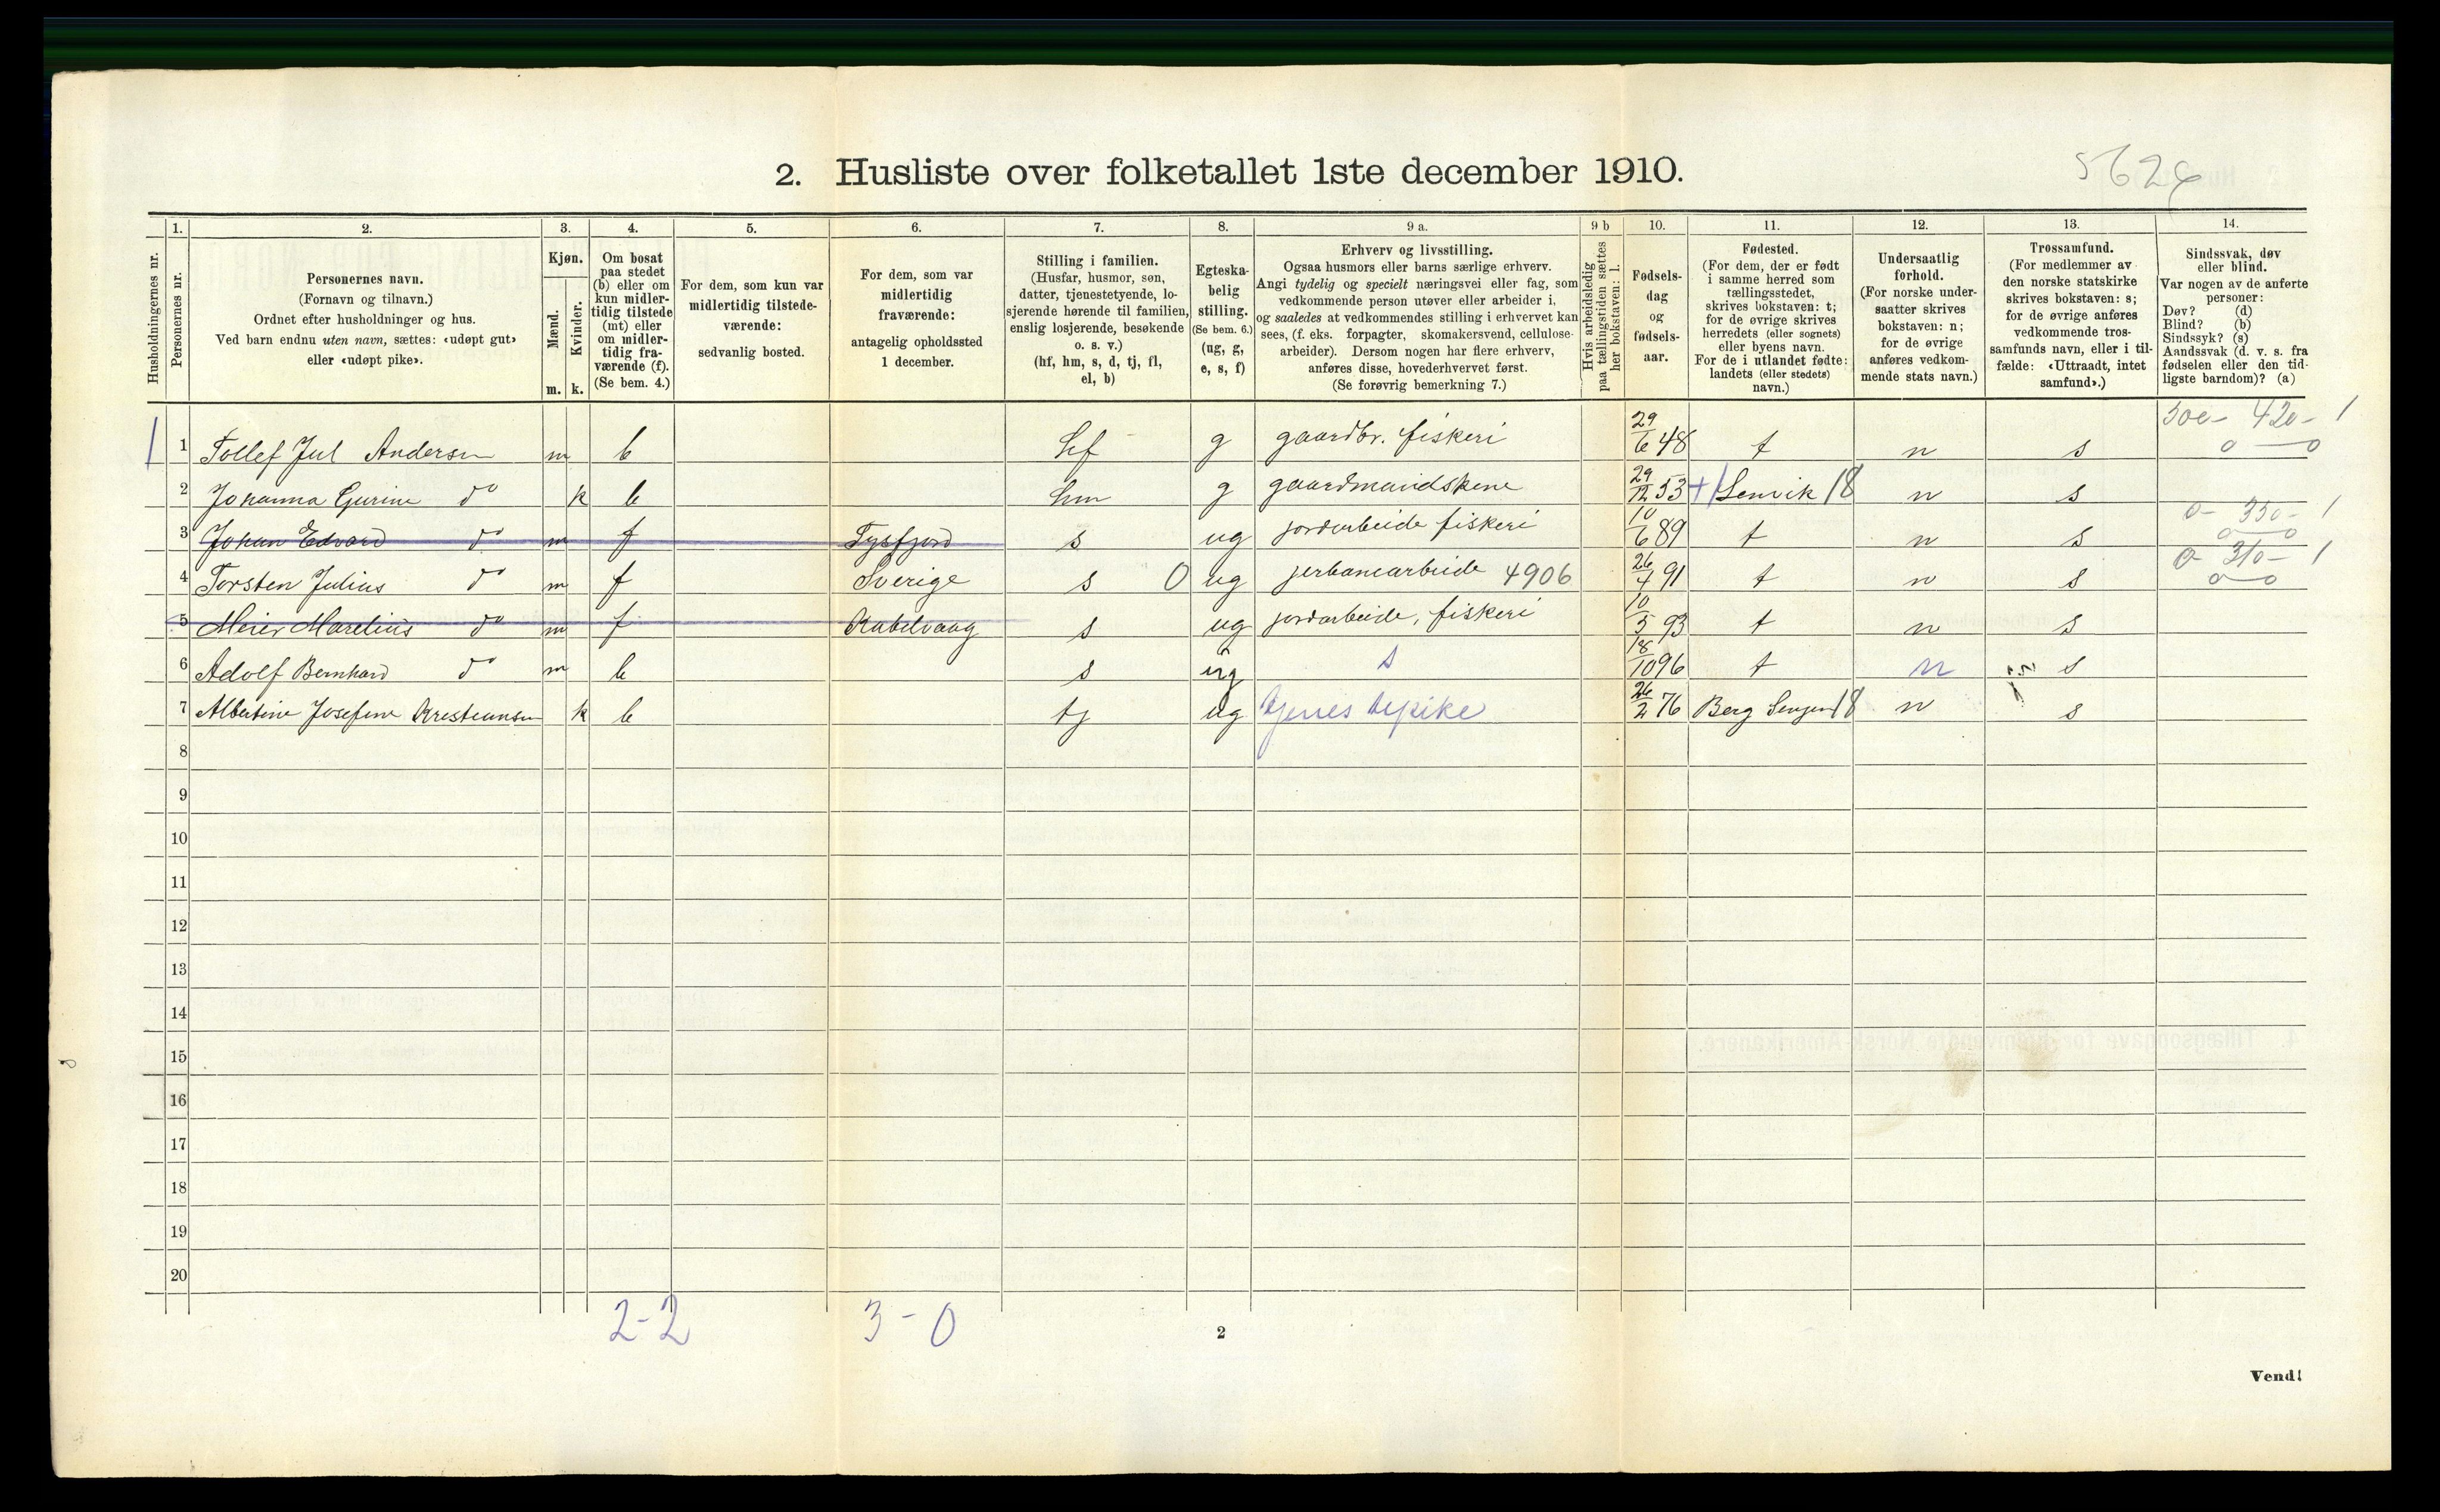 2. Husliste over folketallet 1ste december 1910.
1. 2. 3. 4. 5. 6. 7. 8. 9 a. 9 b 10. 11. 12. 13. 14.
Husholdningernes nr.
Personernes nr.
Personernes navn.
(Fornavn og tilnavn.)
Ordnet efter husholdninger og hus.
Ved barn endnu uten navn, sættes: «udøpt gut»
eller «udøpt pike».
Kjøn.
Mænd.
Kvinder.
m. k.
Om bosat
paa stedet
(b) eller om
kun midler-
tidig tilstede
(mt) eller
om midler-
tidig fra-
værende (f).
(Se bem. 4.)
For dem, som kun var
midlertidig tilstede-
værende:
sedvanlig bosted.
For dem, som var
midlertidig
fraværende:
antagelig opholdssted
1 december.
Stilling i familien.
(Husfar, husmor, søn,
datter, tjenestetyende, lo-
sjerende hørende til familien,
enslig losjerende, besøkende
o. s. v.)
(hf, hm, s, d, tj, fl,
el, b)
Egteska-
belig
stilling.
(Se bem. 6.)
(ug, g,
e, s, f)
Erhverv og livsstilling.
Ogsaa husmors eller barns særlige erhverv.
Angi tydelig og specielt næringsvei eller fag, som
vedkommende person utøver eller arbeider i,
og saaledes at vedkommendes stilling i erhvervet kan
sees, (f. eks. forpagter, skomakersvend, cellulose-
arbeider). Dersom nogen har flere erhverv,
anføres disse, hovederhvervet først.
(Se forøvrig bemerkning 7.)
Hvis arbeidsledig
paa tællingstiden sættes
her bokstaven: l.
Fødsels-
dag
og
fødsels-
aar.
Fødested.
(For dem, der er født
i samme herred som
tællingsstedet,
skrives bokstaven: t;
for de øvrige skrives
herredets (eller sognets)
eller byens navn.
For de i utlandet fødte:
landets (eller stedets)
navn.)
Undersaatlig
forhold.
(For norske under-
saatter skrives
bokstaven: n;
for de øvrige
anføres vedkom-
mende stats navn.)
Trossamfund.
(For medlemmer av
den norske statskirke
skrives bokstaven: s;
for de øvrige anføres
vedkommende tros-
samfunds navn, eller i til-
fælde: «Uttraadt, intet
samfund».)
Sindssvak, døv
eller blind.
Var nogen av de anførte
personer:
Døv? (d)
Blind? (b)
Sindssyk? (s)
Aandssvak (d. v. s. fra
fødselen eller den tid-
ligste barndom)? (a)
1 1 Tollef Jul Andersen m b hf g gaardbr. fiskeri 29/6 48 t n s 420- 1
2 Johanna Gurine do k b hm g 29/12 53 Lenvik 18 n s
3 Johan Edvard do m f Tysfjord s ug jordarbeide fiskeri 10/6 89 t n s 0- 350- 1
4 Torsten Julius do m f Sverige s 0 ug jerbanearbeide 4906 26/4 91 t n s 0- 310- 1
5 Meier Marelius do m f Kabelvaag s ug jordarbeide, fiskeri 10/5 93 t n s
6 Adolf Bernhard do m b s ug s 18/10 96 t n s
7 Albertine Josefine Kristiansen k b tj ug tjenestepike 26/2 76 Berg Senjen 18 n s
8
9
10
11
12
13
14
15
16
17
18
19
20
2-2 3-0
2
Vend!